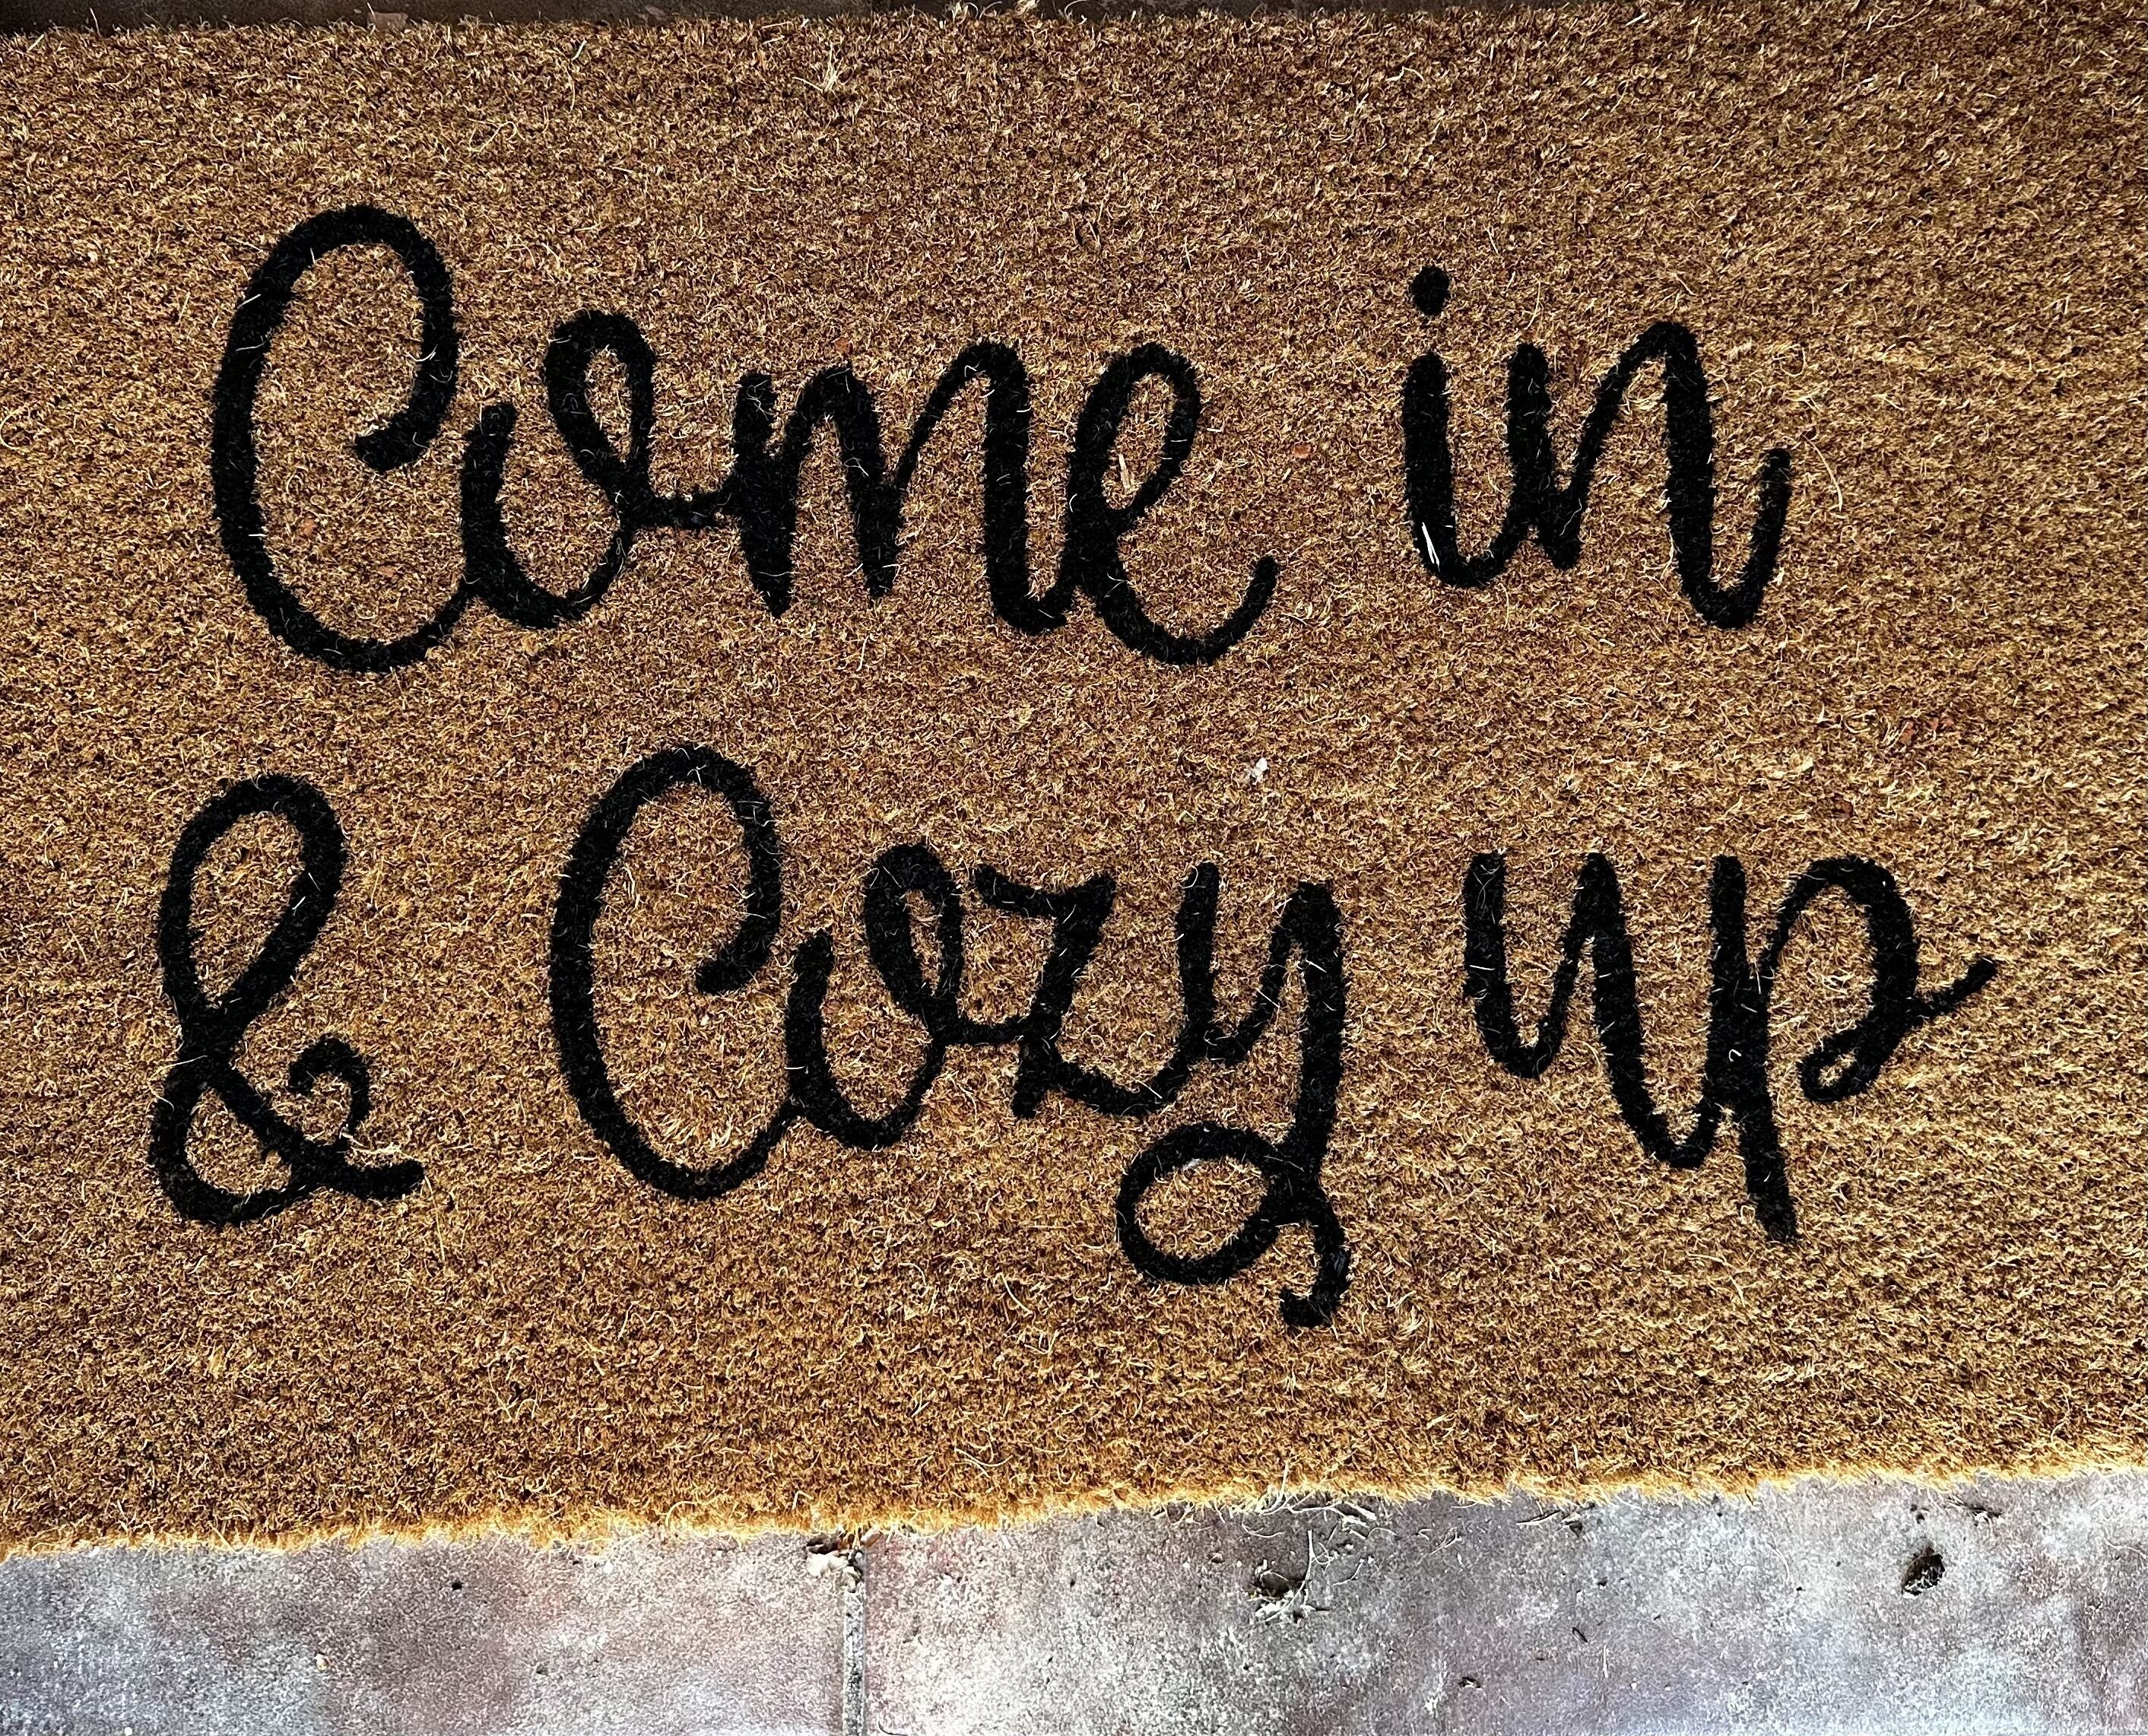 Come in
& Cozy up